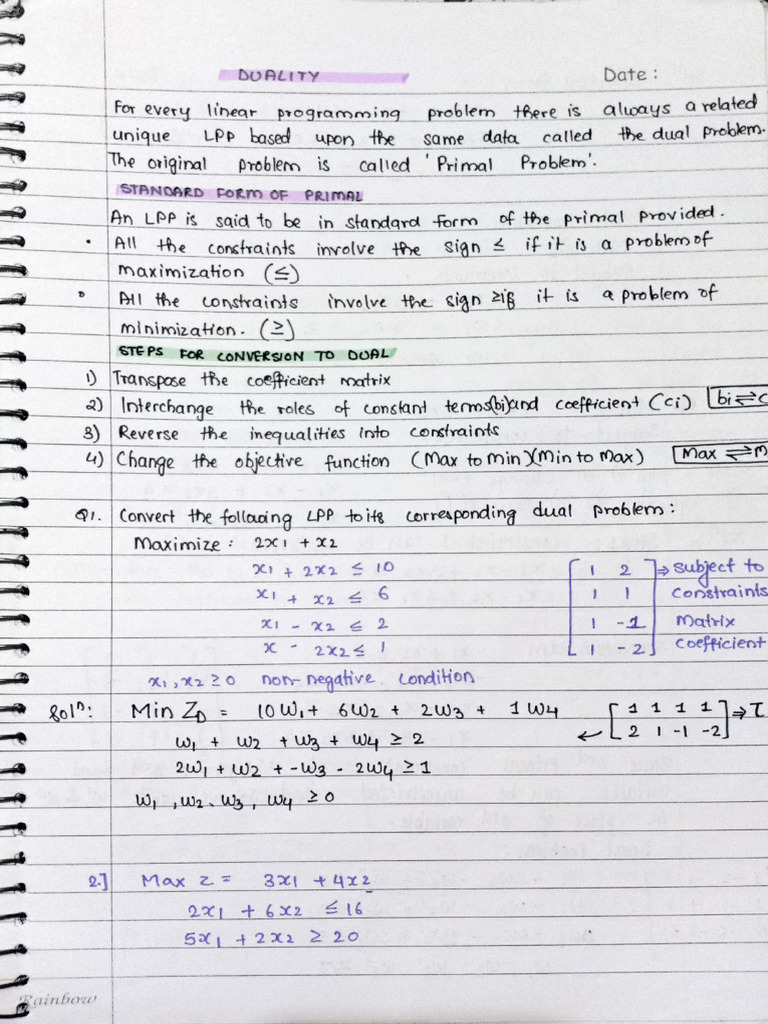 DUALITY Date :
For every linear programming problem there is always a related
unique LPP based upon the same data called the dual problem.
The original problem is called 'Primal Problem'.
STANDARD FORM OF PRIMAL
An LPP is said to be in standard form of the primal provided.
• All the constraints involve the sign ≤ if it is a problem of
maximization (≤)
• All the constraints involve the sign ≥ if it is a problem of
minimization. (≥)
STEPS FOR CONVERSION TO DUAL
1) Transpose the coefficient matrix
2) Interchange the roles of constant terms(bi) and coefficient (ci) bi ⇌ c
3) Reverse the inequalities into constraints
4) Change the objective function (Max to min)(Min to Max) Max ⇌ M
Q1. Convert the following LPP to its corresponding dual problem :
Maximize : 2x1 + x2
x1 + 2x2 ≤ 10 [ 1 2 ] ⇒ subject to
x1 + x2 ≤ 6 1 1 constraints
x1 - x2 ≤ 2 1 -1 matrix
x - 2x2 ≤ 1 1 -2 coefficient
x1, x2 ≥ 0 non-negative condition
Solⁿ: Min ZD = 10w1 + 6w2 + 2w3 + 1w4 [ 1 1 1 1 ] ⇒ T
w1 + w2 + w3 + w4 ≥ 2 ↙ 2 1 -1 -2
2w1 + w2 + -w3 - 2w4 ≥ 1
w1, w2, w3, w4 ≥ 0
2.] Max z = 3x1 + 4x2
2x1 + 6x2 ≤ 16
5x1 + 2x2 ≥ 20
Rainbow